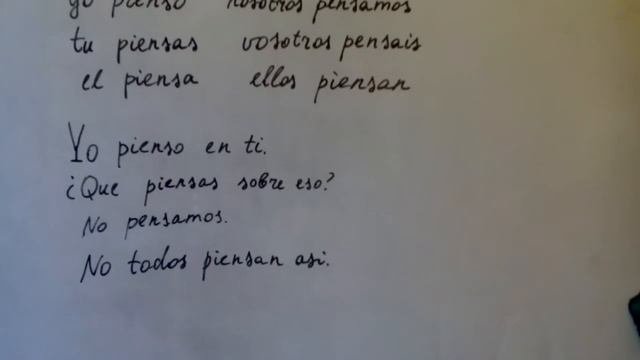 yo pienso nosotros pensamos
tu piensas vosotros pensais
el piensa ellos piensan
Yo pienso en ti.
¿Que piensas sobre eso?
No pensamos.
No todos piensan asi.